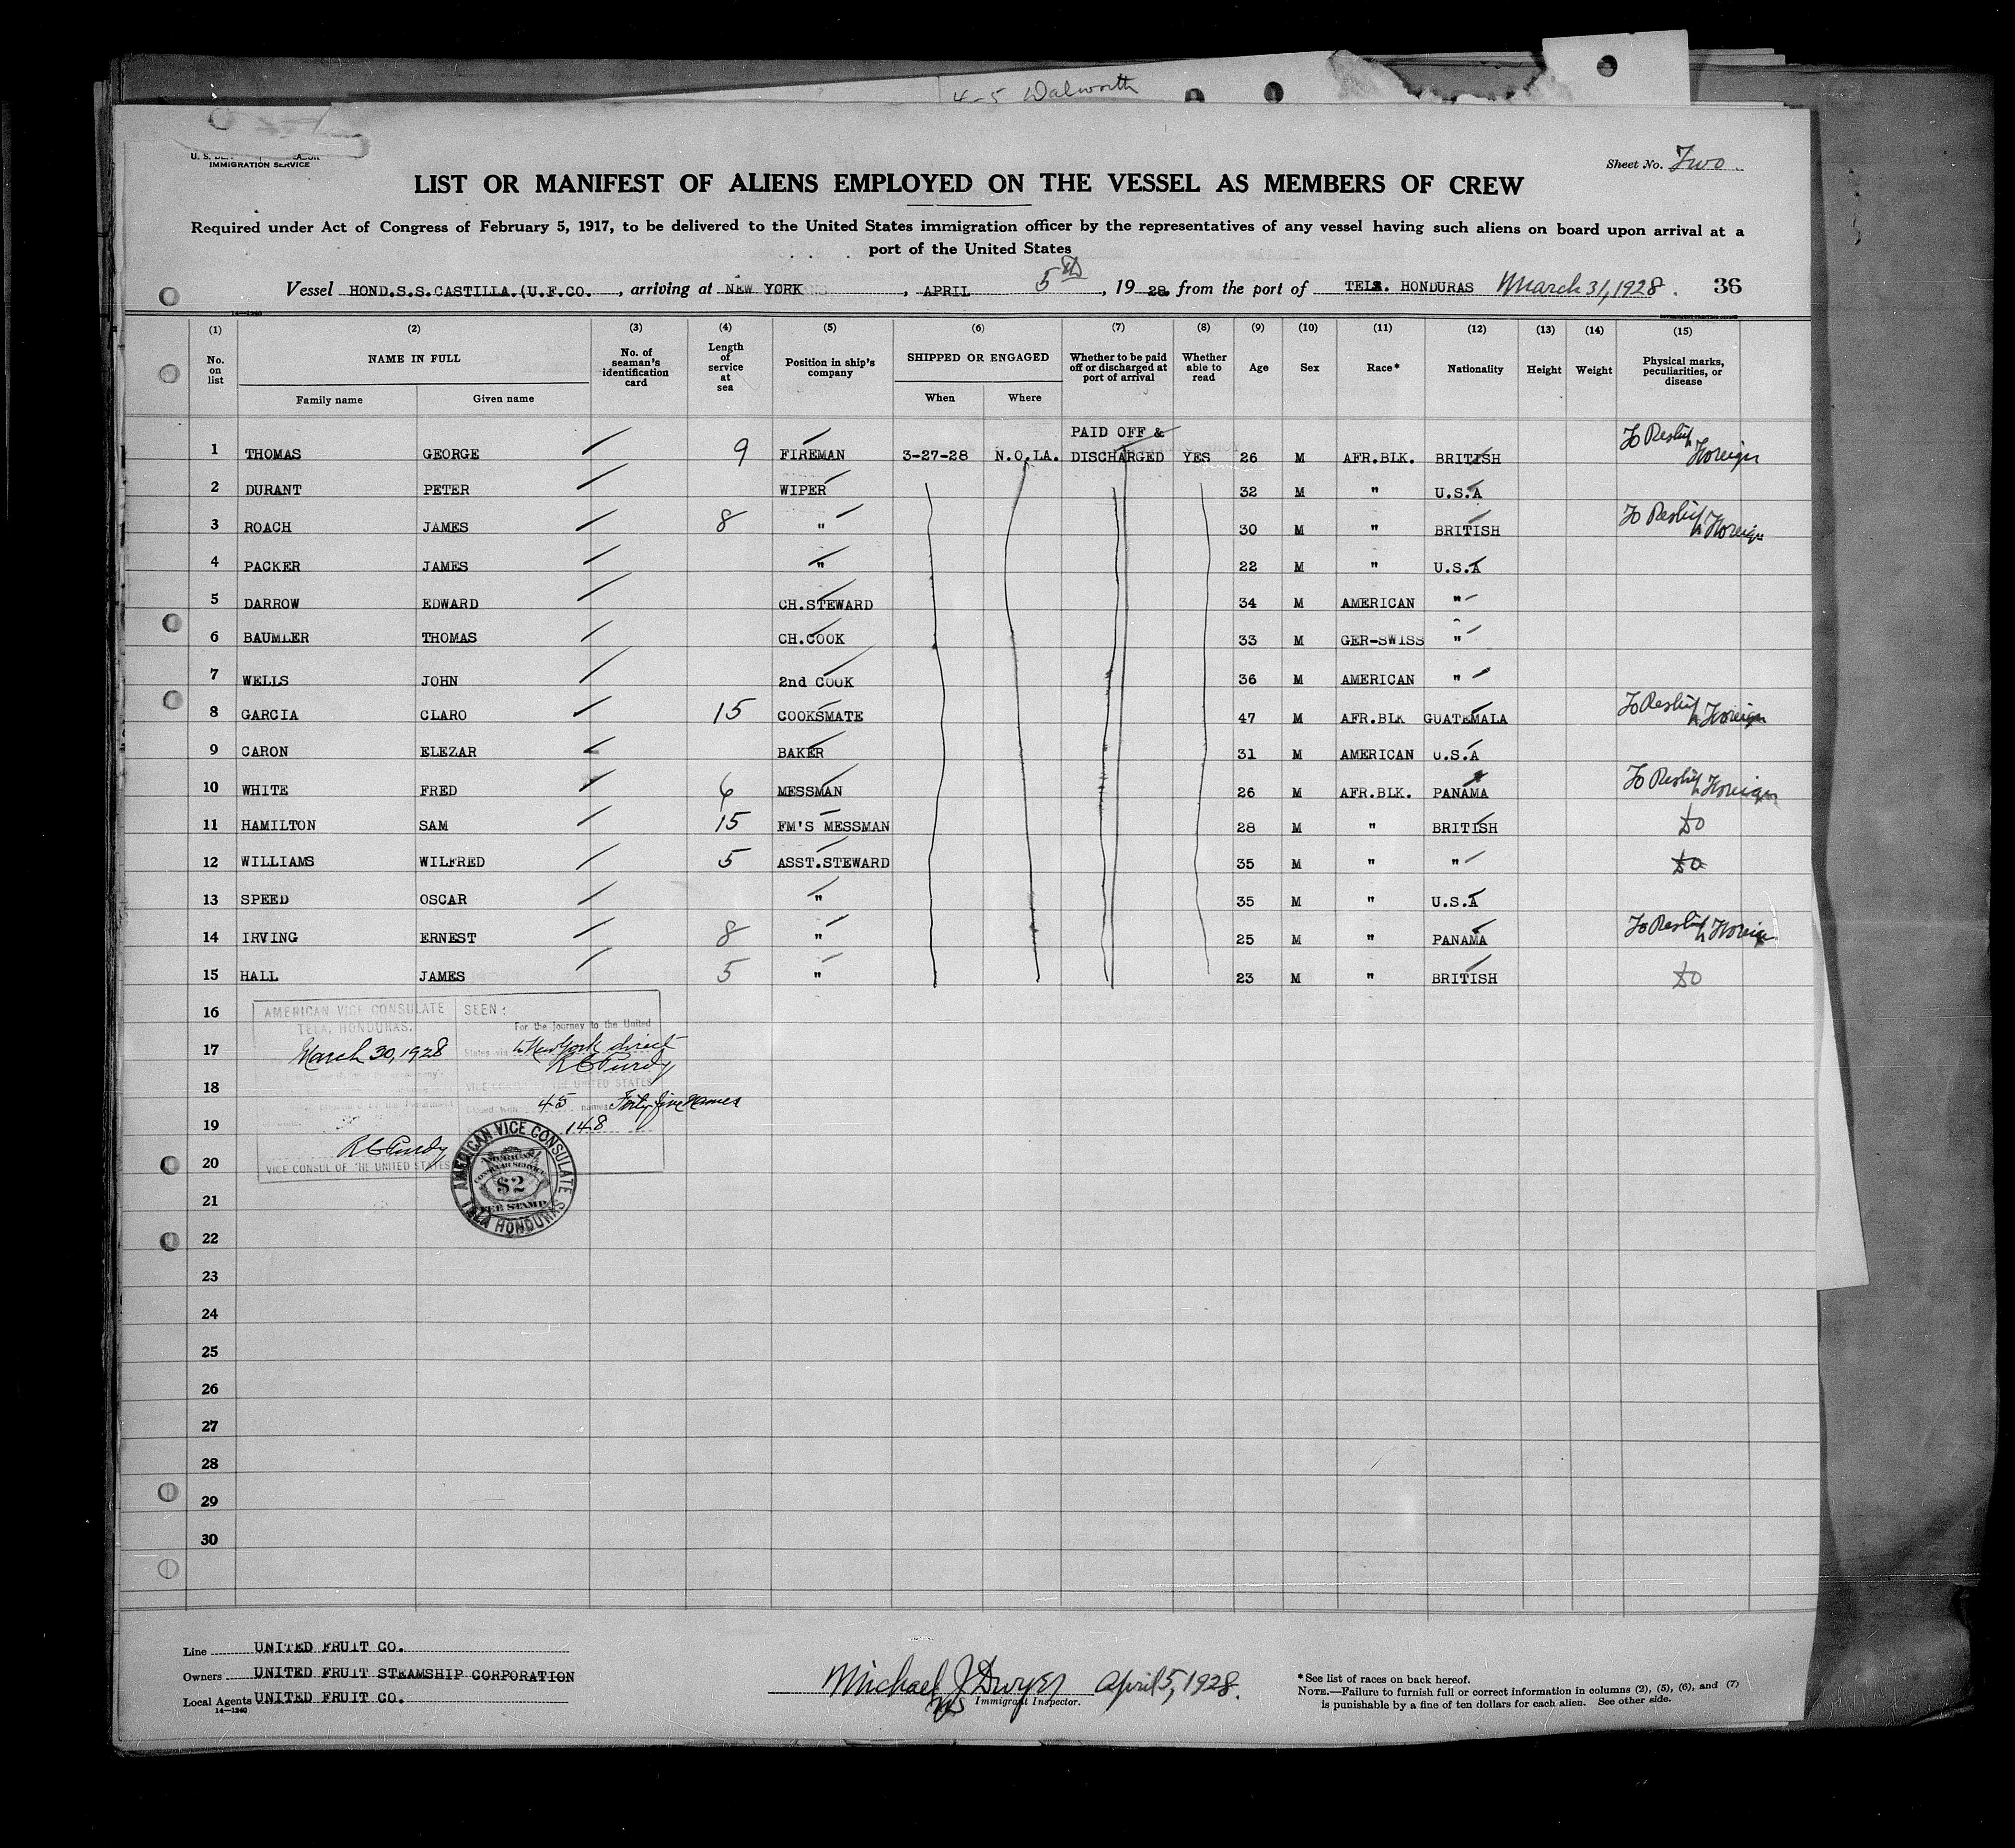 4-5 Walworth
IMMIGRATION SERVICE
Sheet No. Two
LIST OR MANIFEST OF ALIENS EMPLOYED ON THE VESSEL AS MEMBERS OF CREW
Required under Act of Congress of February 5, 1917, to be delivered to the United States immigration officer by the representatives of any vessel having such aliens on board upon arrival at a
port of the United States
Vessel HOND.S.S.CASTILLA.(U.F.CO. , arriving at NEW YORK , APRIL 5th , 19 28 , from the port of TELA. HONDURAS March 31, 1928. 36
14-1240
(1) (2) (3) (4) (5) (6) (7) (8) (9) (10) (11) (12) (13) (14) (15)
No. on list NAME IN FULL No. of seaman's identification card Length of service at sea Position in ship's company SHIPPED OR ENGAGED Whether to be paid off or discharged at port of arrival Whether able to read Age Sex Race* Nationality Height Weight Physical marks, peculiarities, or disease
Family name Given name When Where
PAID OFF &
1 THOMAS GEORGE 9 FIREMAN 3-27-28 N.O.LA. DISCHARGED YES 26 M AFR.BLK. BRITISH To Reship Foreign
2 DURANT PETER WIPER 32 M " U.S.A
3 ROACH JAMES 8 " 30 M " BRITISH To Reship Foreign
4 PACKER JAMES " 22 M " U.S.A
5 DARROW EDWARD CH.STEWARD 34 M AMERICAN "
6 BAUMLER THOMAS CH.COOK 33 M GER-SWISS "
7 WELLS JOHN 2nd COOK 36 M AMERICAN "
8 GARCIA CLARO 15 COOKSMATE 47 M AFR.BLK GUATEMALA To Reship Foreign
9 CARON ELEZAR BAKER 31 M AMERICAN U.S.A
10 WHITE FRED 6 MESSMAN 26 M AFR.BLK. PANAMA To Reship Foreign
11 HAMILTON SAM 15 FM'S MESSMAN 28 M " BRITISH do
12 WILLIAMS WILFRED 5 ASST.STEWARD 35 M " " do
13 SPEED OSCAR " 35 M " U.S.A
14 IRVING ERNEST 8 " 25 M " PANAMA To Reship Foreign
15 HALL JAMES 5 " 23 M " BRITISH do
16
17
18
19
20
21
22
23
24
25
26
27
28
29
30
AMERICAN VICE CONSULATE
TELA, HONDURAS.
March 30, 1928
R C Purdy
VICE CONSUL OF THE UNITED STATES
SEEN:
For the journey to the United
States via to New York direct
R C Purdy
VICE CONSUL OF THE UNITED STATES
Closed with 45 names Forty five names
148
AMERICAN VICE CONSULATE
TELA HONDURAS
AMERICAN
CONSULAR SERVICE
$2
FEE STAMP
Line UNITED FRUIT CO.
Owners UNITED FRUIT STEAMSHIP CORPORATION
Local Agents UNITED FRUIT CO.
14-1240
Michael J Dwyer April 5, 1928.
Immigrant Inspector.
*See list of races on back hereof.
NOTE.—Failure to furnish full or correct information in columns (2), (5), (6), and (7)
is punishable by a fine of ten dollars for each alien. See other side.